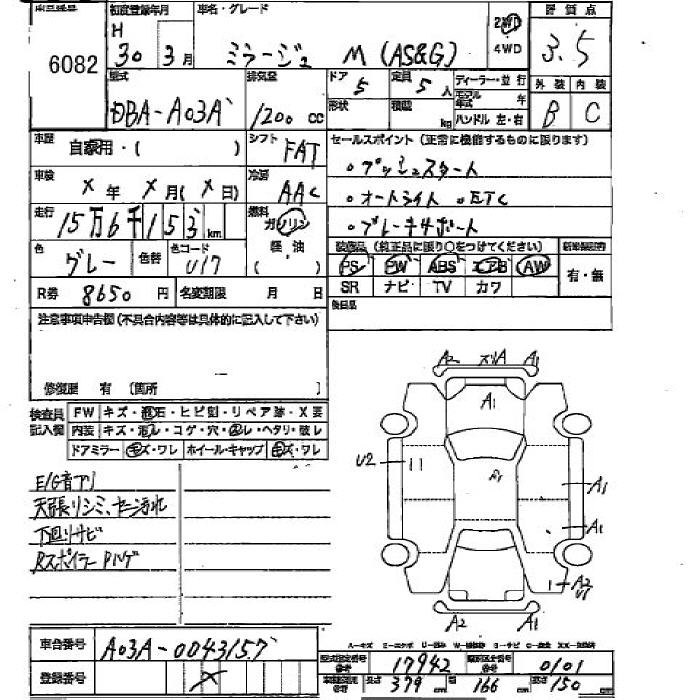 6082
初度登録年月
H
30年 3月
車名・グレード
ミラージュ M (AS&G)
2WD
4WD
評価点
3.5
型式
DBA-A03A
排気量
1200 cc
ドア
5
形状
定員
5人
積載
kg
ディーラー・並行
モデル年式 年
ハンドル 左・右
外装
B
内装
C
車歴
自家用・( )
シフト
FAT
セールスポイント(正常に機能するものに限ります)
・プッシュスタート
・オートライト ・ETC
・ブレーキサポート
車検
X年 X月(X日)
冷房
AAC
走行
15万6千153km
燃料
ガソリン
軽油
( )
色
グレー
色替
色コード
U17
装備品(純正品に限り○をつけてください)
PS PW ABS エアB AW
SR ナビ TV カワ
有・無
R券 8650円
名変期限 月 日
後日品
注意事項申告欄(不具合内容等は具体的に記入して下さい)
修復歴 有(箇所 )
検査員記入欄
FW キズ・飛石・ヒビ割・リペア跡・X要
内装 キズ・汚レ・コゲ・穴・スレ・ヘタリ・破レ
ドアミラー キズ・ワレ ホイール・キャップ キズ・ワレ
E/G音アリ
天張リシミ、セーフ汚れ
下回リサビ
Rスポイラー Pハゲ
A2 A1
A1
U2
A1
A1
A1
A2
U1
A2 A1
車台番号
A03A-0043157
登録番号
X
17942
0101
長さ 379 cm
166 cm
高さ 150 cm